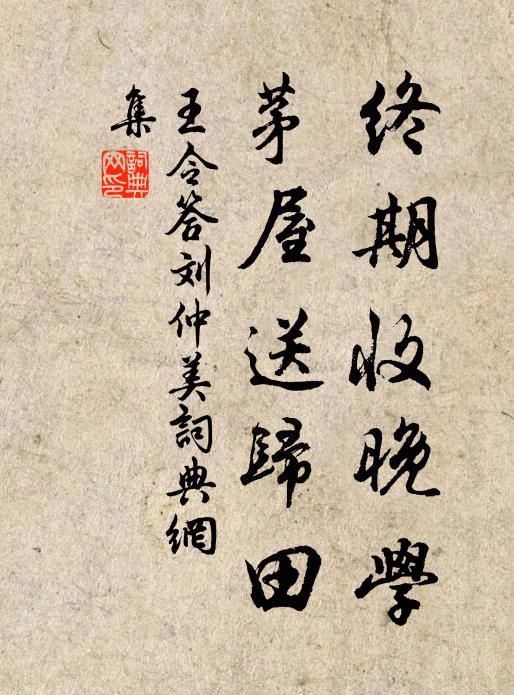 终期收晚學
茅屋送歸田
王令答刘仲美詞典網
集
詞典网印